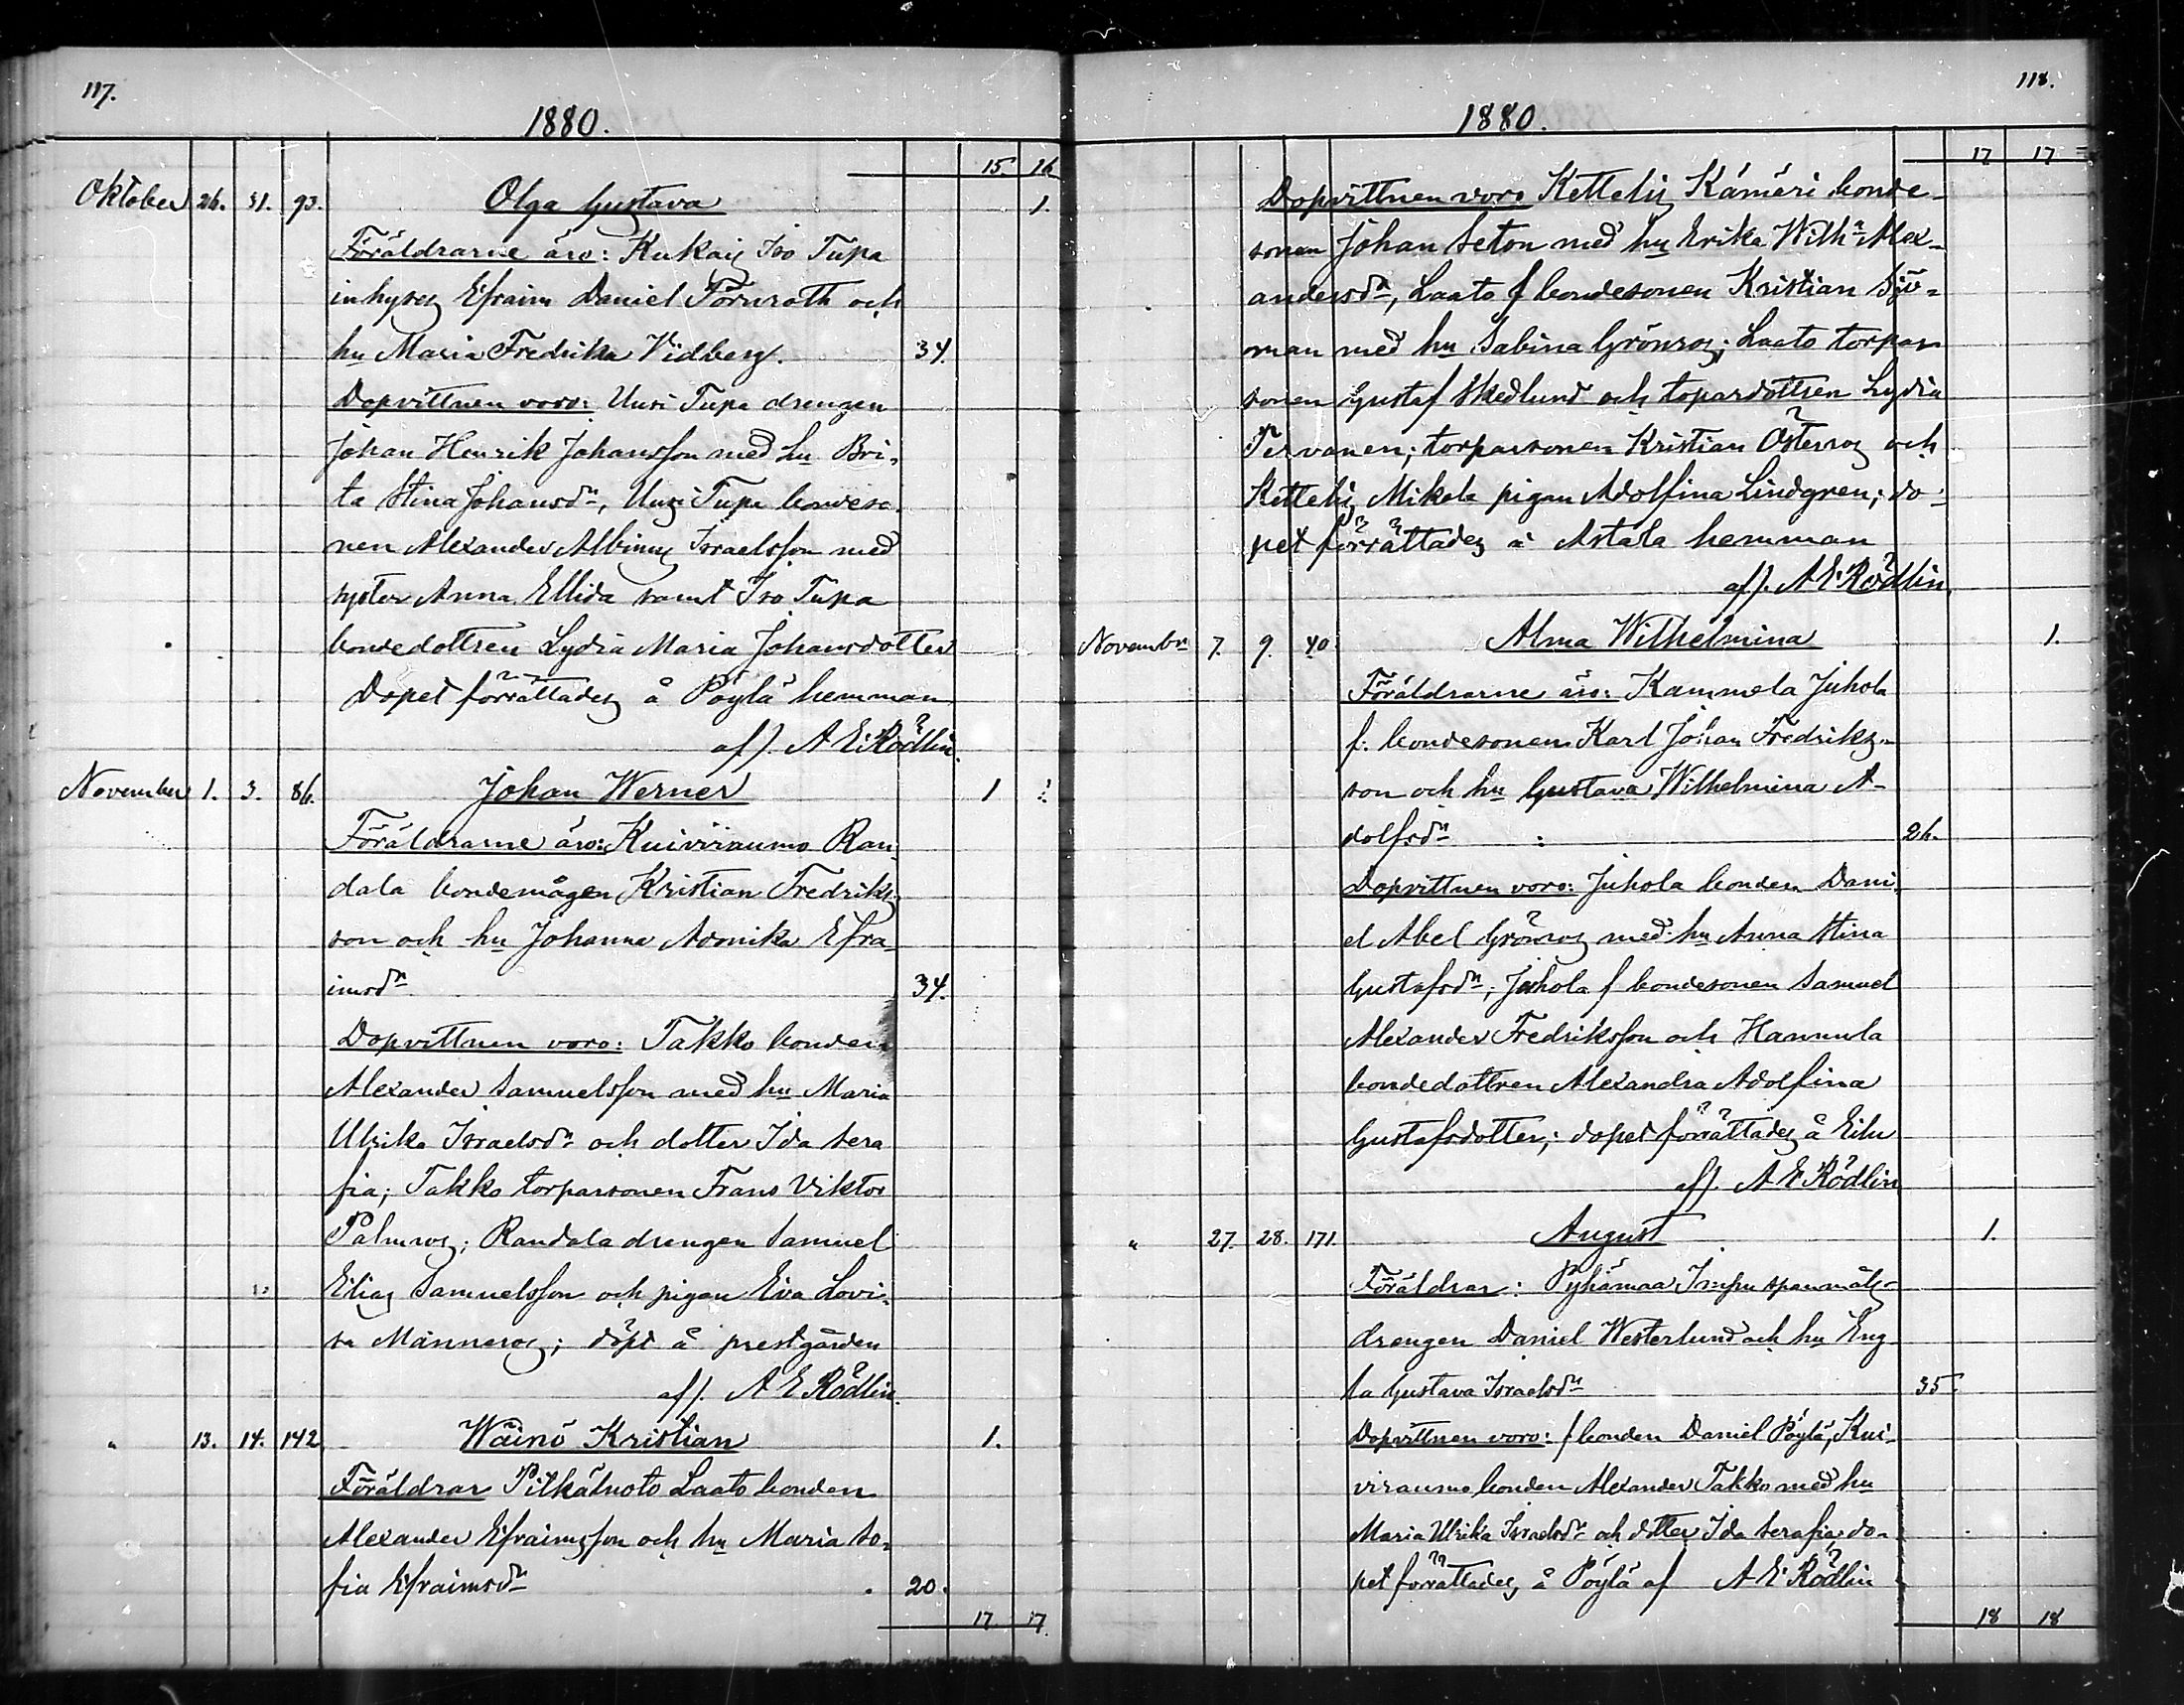 117.
1880.
15. 16
Oktober 26. 31. 93. Olga Gustava 1.
Föräldrarne äro: Kukais Iso Tupa
inhyses Efraim Daniel Törnroth och
hu Maria Fredrika Vidberg. 34.
Dopvittnen voro: Uusi Tupa drengen
Johan Henrik Johansson med hu Bri-
ta Stina Johansdr, Uusi Tupa bondeso-
nen Alexander Albinus Israelsson med
syster Anna Ellida samt Iso Tupa
bondedottren Lydia Maria Johansdotter
Dopet förrättades å Pöylä hemman
af). A E Rödlin.
November 1. 3. 86. Johan Werner 1
Föräldrarne äro: Kuiviraumo Ran-
dala bondemågen Kristian Fredriks-
son och hu Johanna Avonika Efra-
imsdr 34.
Dopvittnen voro: Takko bonden
Alexander Samuelsson med hu Maria
Ulrika Israelsdr och dotter Ida Sera
fia; Takko torparsonen Frans Viktor
Palmros; Randala drengen Samuel
Elias Samuelsson och pigan Eva Lovi-
sa Männeros; döpt å prestgården
af). A E Rödlin.
" 13. 14. 142 Wäinö Kristian 1.
Föräldrar Pitkäluoto Laato bonden
Alexander Efraimsson och hu Maria So-
fia Efraimsdr 20.
17. 17.
118.
1880.
17 17
Dopvittnen voro Kettelis Kämäri bonde-
sonen Johan Seton med hu Erika Wilhna Alex-
andersdr, Laato f bondesonen Kristian Sjö-
man med hu Sabina Grönros; Laato torpar
sonen Gustaf Skedlund och topardottren Lydia
Tervanen; torparsonen Kristian Österros och
Kettelis Mikola pigan Adolfina Lindgren; do-
pet förrättades å Astala hemman
af). A E Rödlin.
Novembr 7. 9. 40. Alma Wilhelmina 1.
Föräldrarne äro: Kammela Juhola
f. bondesonen Karl Johan Fredriks-
son och hu Gustava Wilhelmina A-
dolfsdr : 26.
Dopvittnen voro: Juhola bonden Dani-
el Abel Grönros med hu Anna Stina
Gustafsdr; Juhola f bondesonen Samuel
Alexander Fredriksson och Hannula
bondedottren Alexandra Adolfina
Gustafsdotter; dopet förrättades å Eilu
af). A E Rödlin
" 27. 28. 171. August 1.
Föräldrar: Pyhämaa spanmåls-
drengen Daniel Westerlund och hu Eng-
la Gustava Israelsdr 35.
Dopvittnen voro: f bonden Daniel Pöylä, Kui-
viraumo bonden Alexander Takko med hu
Maria Ulrika Israelsdr och dotter Ida Serafia; do-
pet förrättades å Pöylä af A E Rödlin
18 18